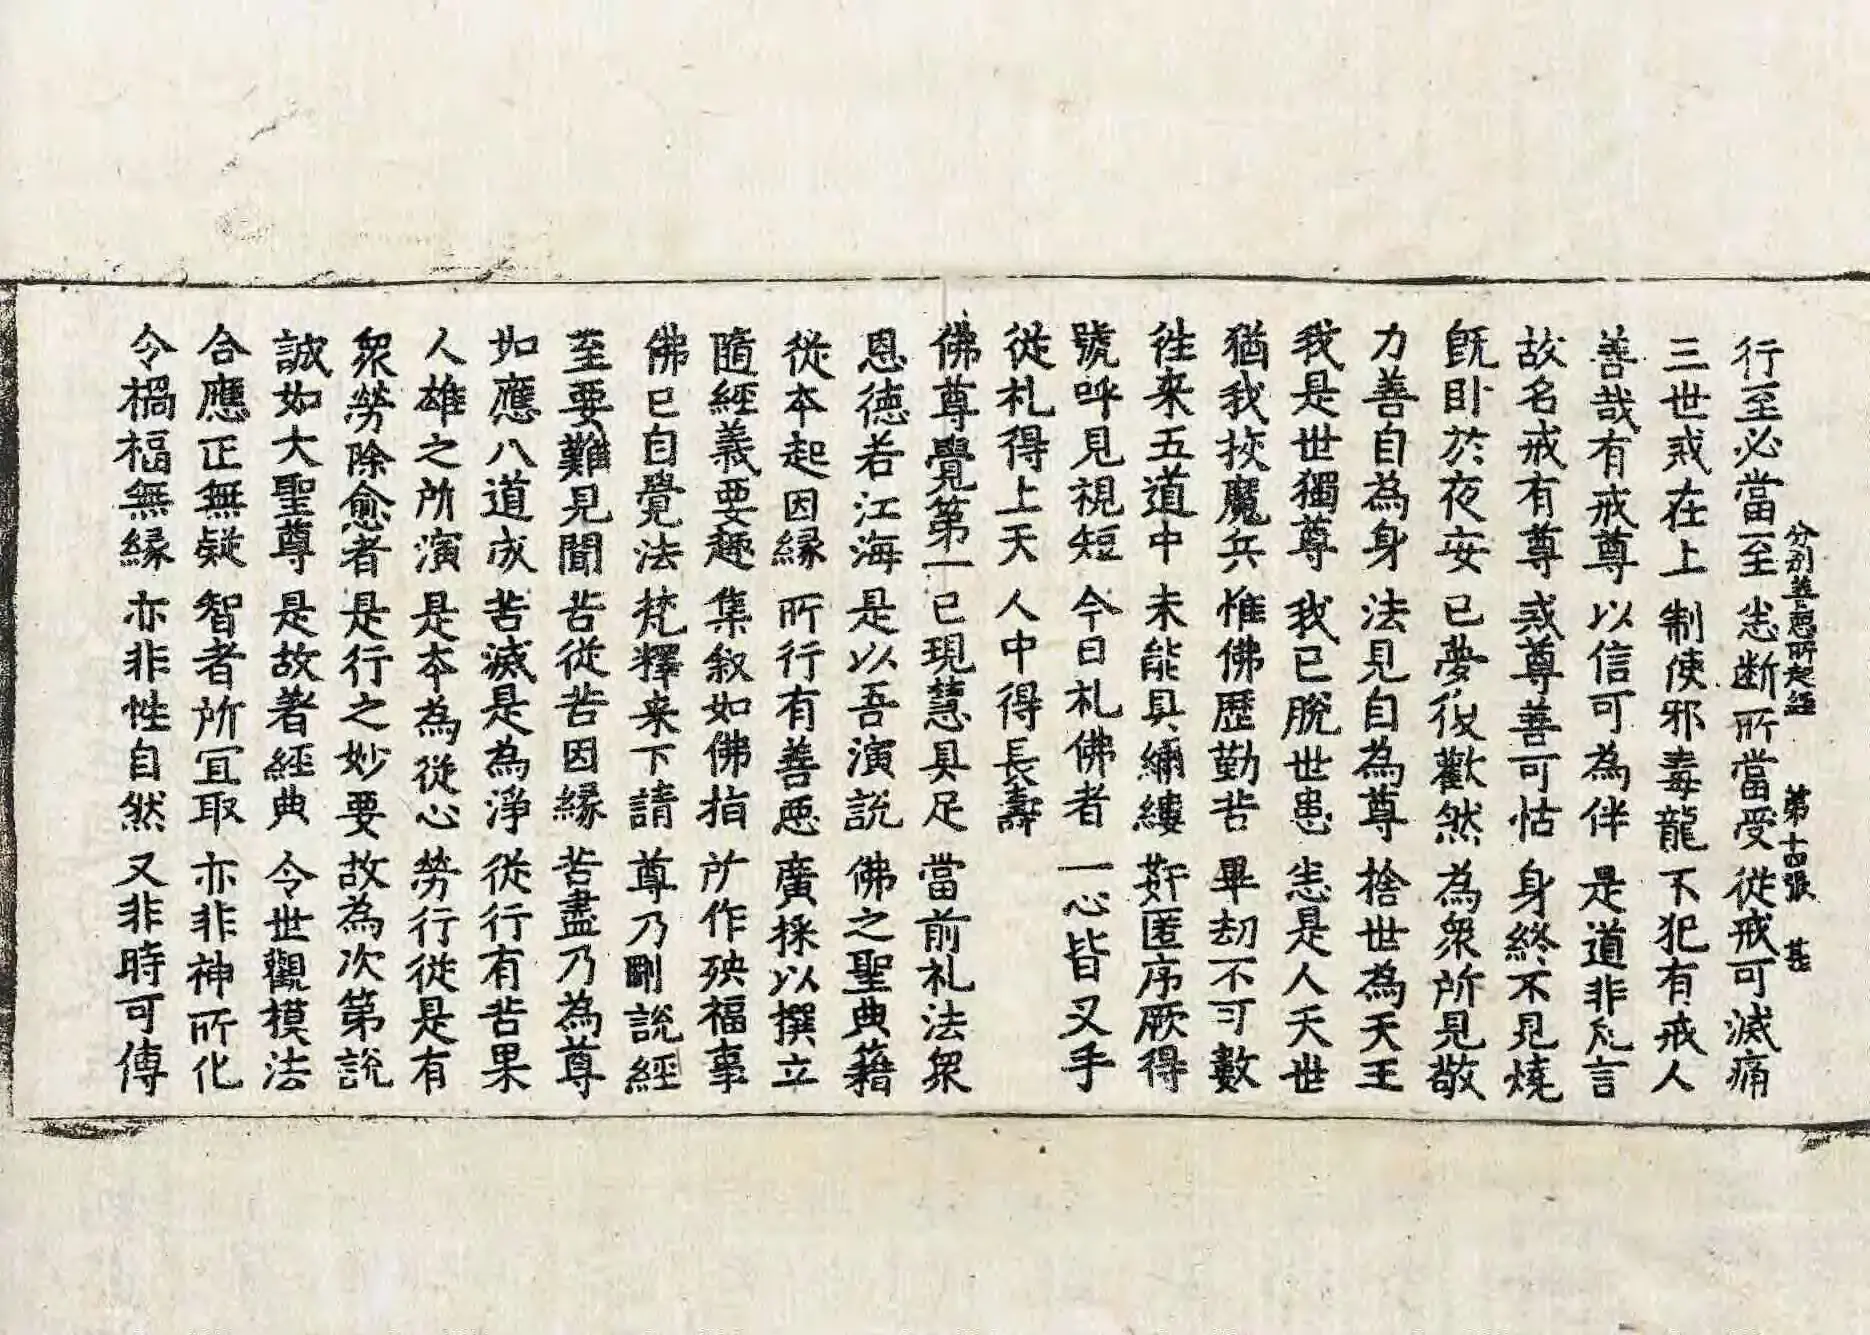 分別善惡所起經 第十四張 甚
行至必當至 悉断所當受 從戒可滅痛
三世戒在上 制使邪毒龍 不犯有戒人
善哉有戒尊 以信可為伴 是道非凡言
故名戒有尊 戒尊善可怙 身終不見燒
旣卧於夜安 已夢復歡然 為衆所見敬
力善自為身 法見自為尊 捨世為天王
我是世獨尊 我已脫世患 悉是人天世
猶我挍魔兵 惟佛歷勤苦 畢劫不可數
徃来五道中 未能具䌤縷 姧匿序厥得
號呼見視短 今日札佛者 一心皆叉手
從札得上天 人中得長壽
佛尊覺第一 已現慧具足 當前札法衆
恩德若江海 是以吾演說 佛之聖典籍
從本起因緣 所行有善惡 廣採以撰立
隨經義要趣 集叙如佛指 所作殃福事
佛已自覺法 梵釋来下請 尊乃剛說經
至要難見聞 苦從苦因緣 苦盡乃為尊
如應八道成 苦滅是為淨 從行有苦果
人雄之所演 是本為從心 勞行從是有
衆勞除愈者 是行之妙要 故為次第說
誠如大聖尊 是故著經典 令世觀模法
合應正無疑 智者所冝取 亦非神所化
令禍福無緣 亦非性自然 又非時可傳